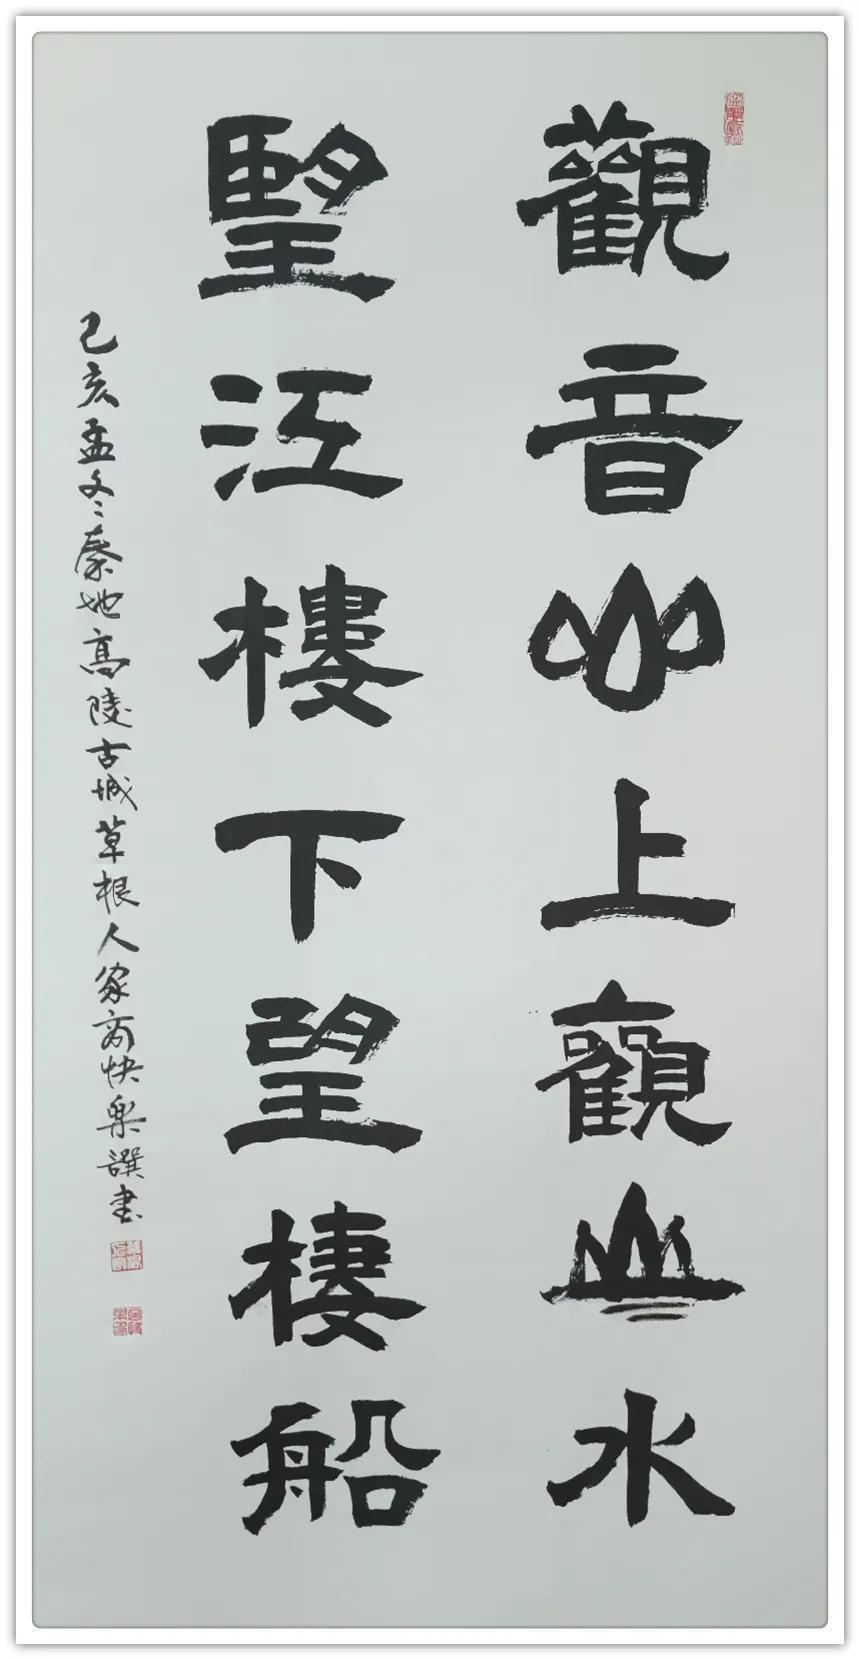 觀音山上觀山水
朢江樓下望棲船
己亥孟冬秦地高陵古城草根人家商快樂譔書